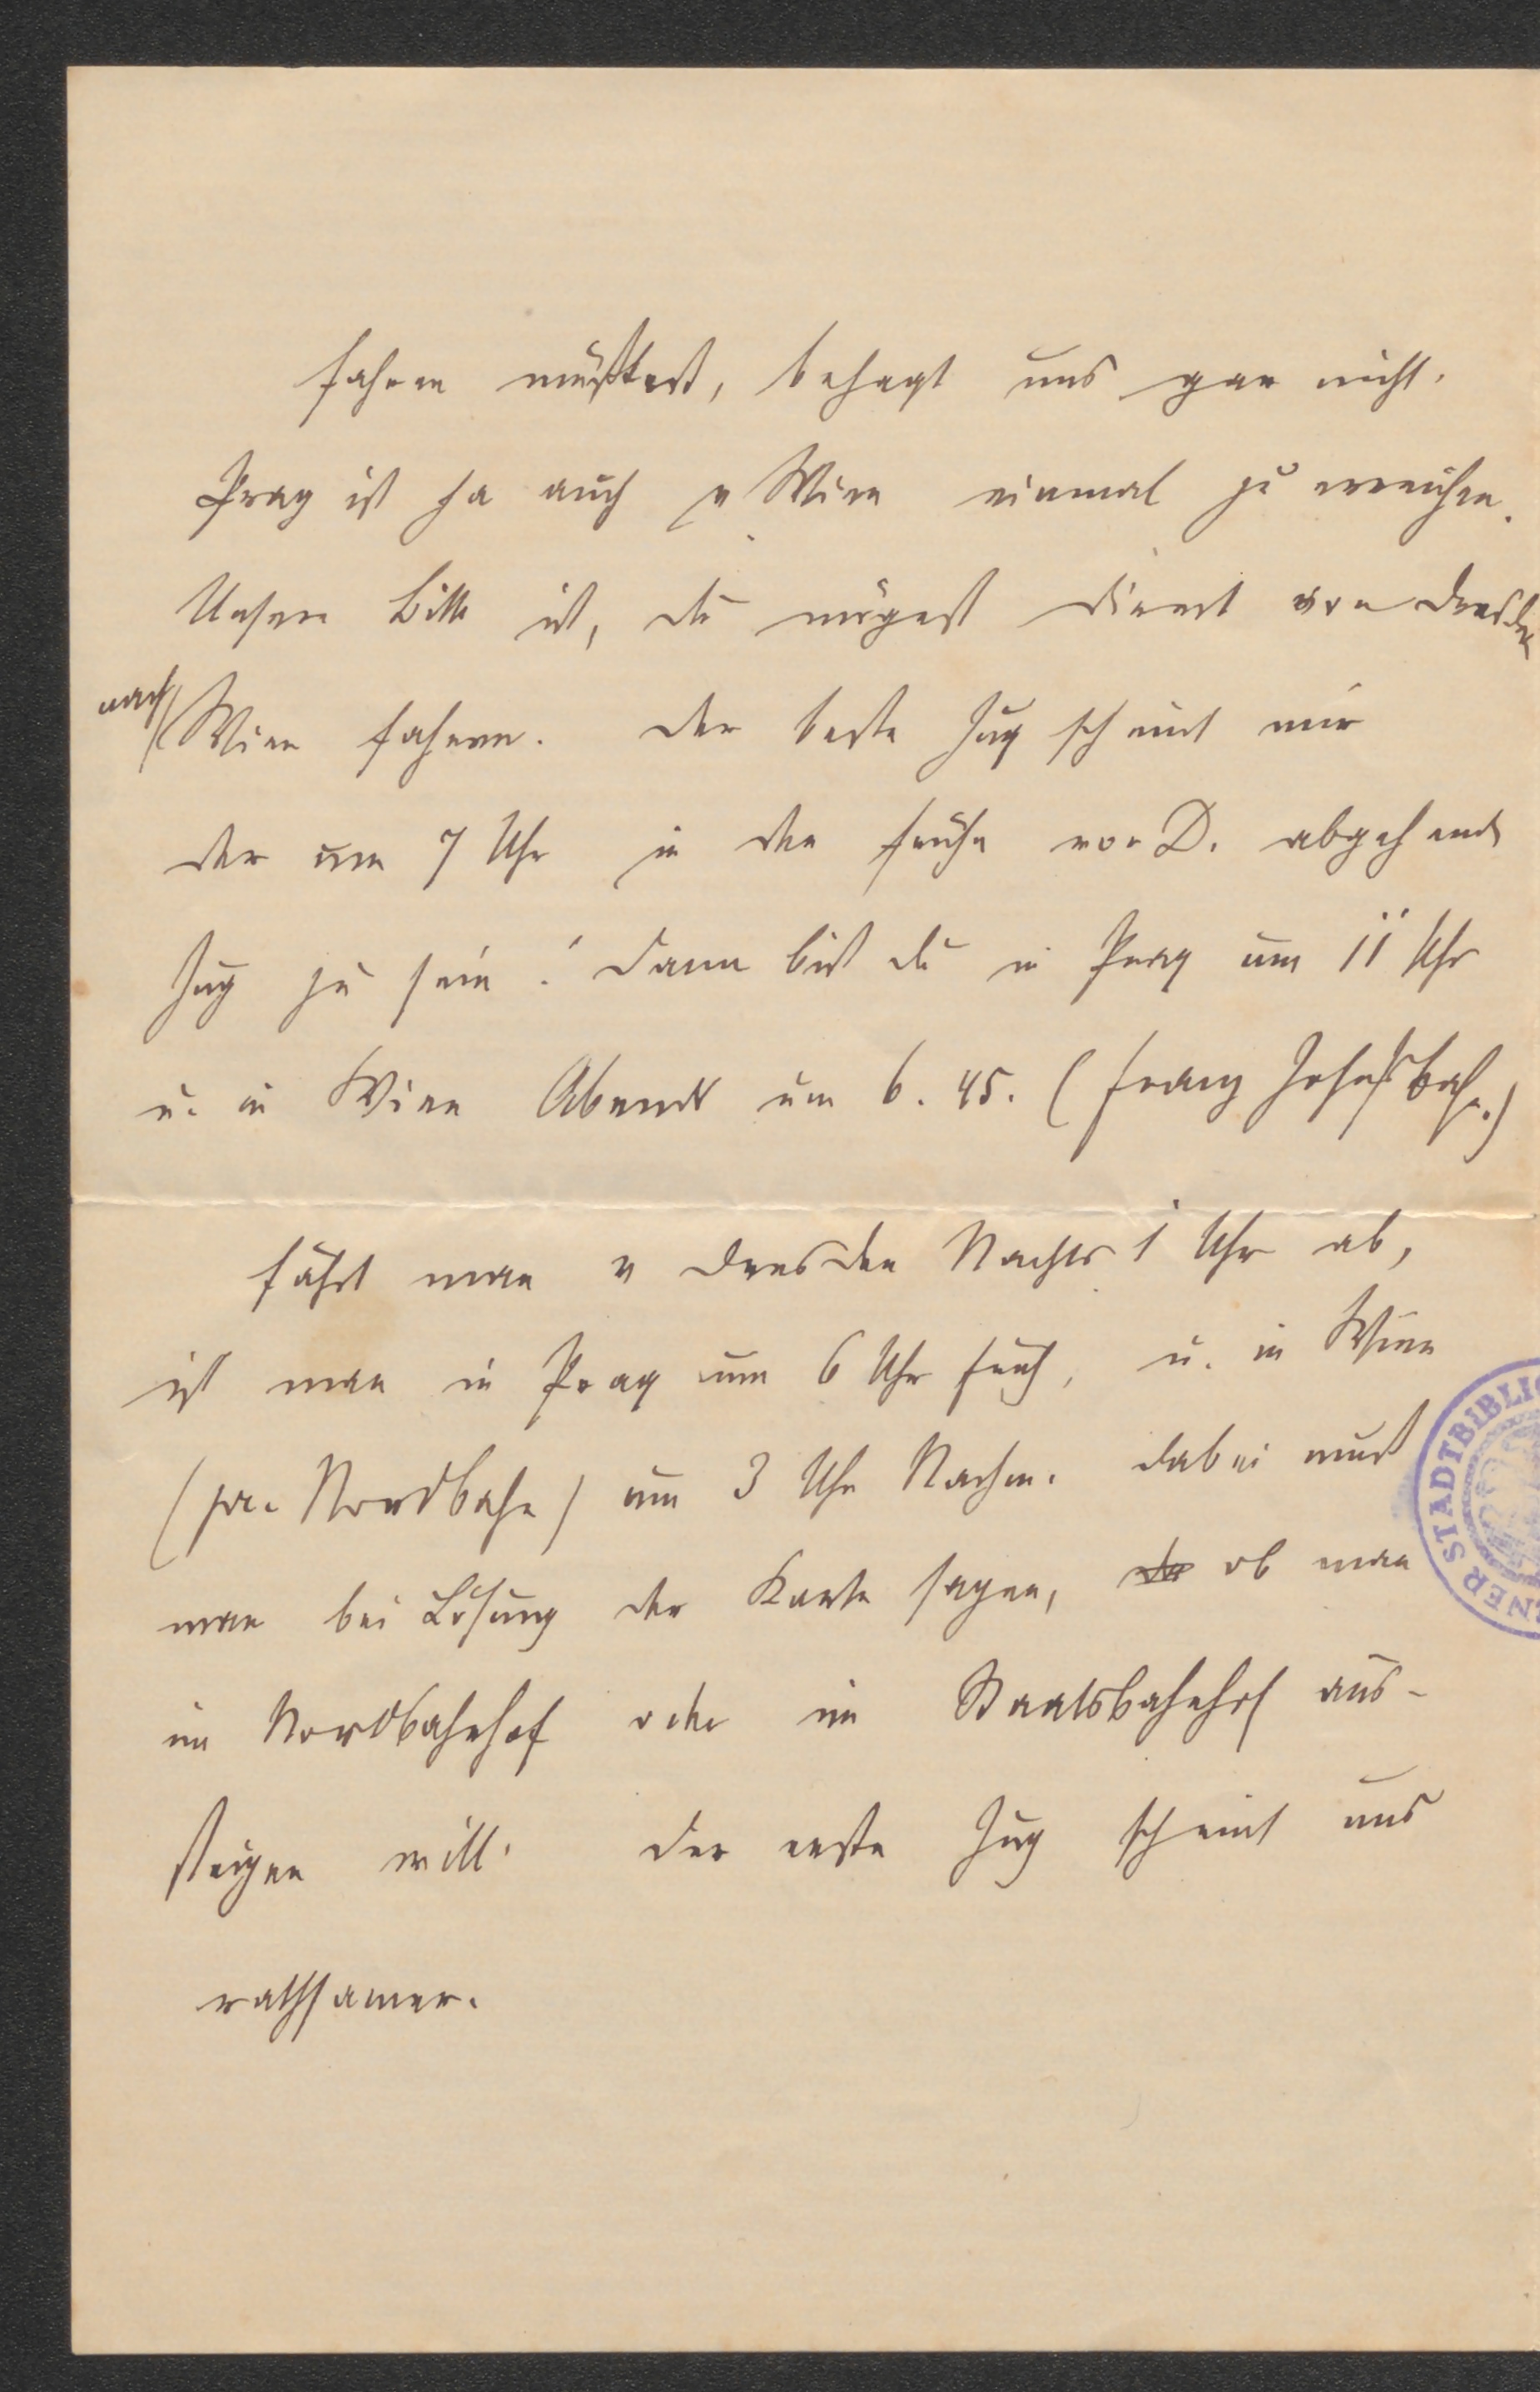 fahren müßtest, behagt uns gar nicht.
Prag ist ja auch v Wien einmal zu erreichen.
Unsere Bitte ist, du mögest direct von Dresden
nach Wien fahren. Der beste Zug scheint mir
der um 7 Uhr in der Frühe von D. abgehende
Zug zu sein! Dann bist du in Prag um 11 Uhr
u. in Wien Abends um 6.45. (Franz Josefsbahn.)
Fährt man v Dresden Nachts 1 Uhr ab,
ist man in Prag um 6 Uhr früh, u. in Wien
(per Nordbahn) um 3 Uhr Nachm. Dabei muß
man bei Lösung der Karte sagen, ob man
im Nordbahnhof oder im Staatsbahnhof aus-
steigen will. Der erste Zug scheint uns
rathsamer.
ENER STADTBIBLIO